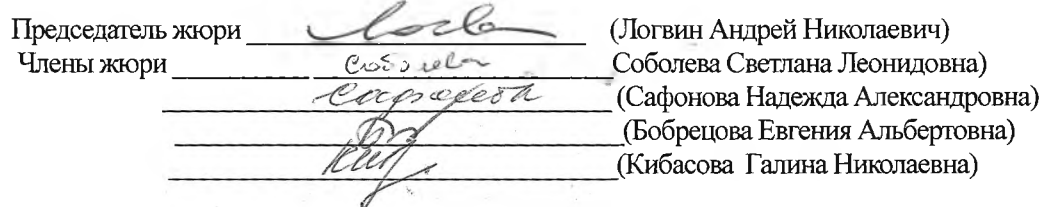 Председатель жюри (Логвин Андрей Николаевич)
Члены жюри Соболева Соболева Светлана Леонидовна)
(Сафонова Надежда Александровна)
(Бобрецова Евгения Альбертовна)
(Кибасова Галина Николаевна)